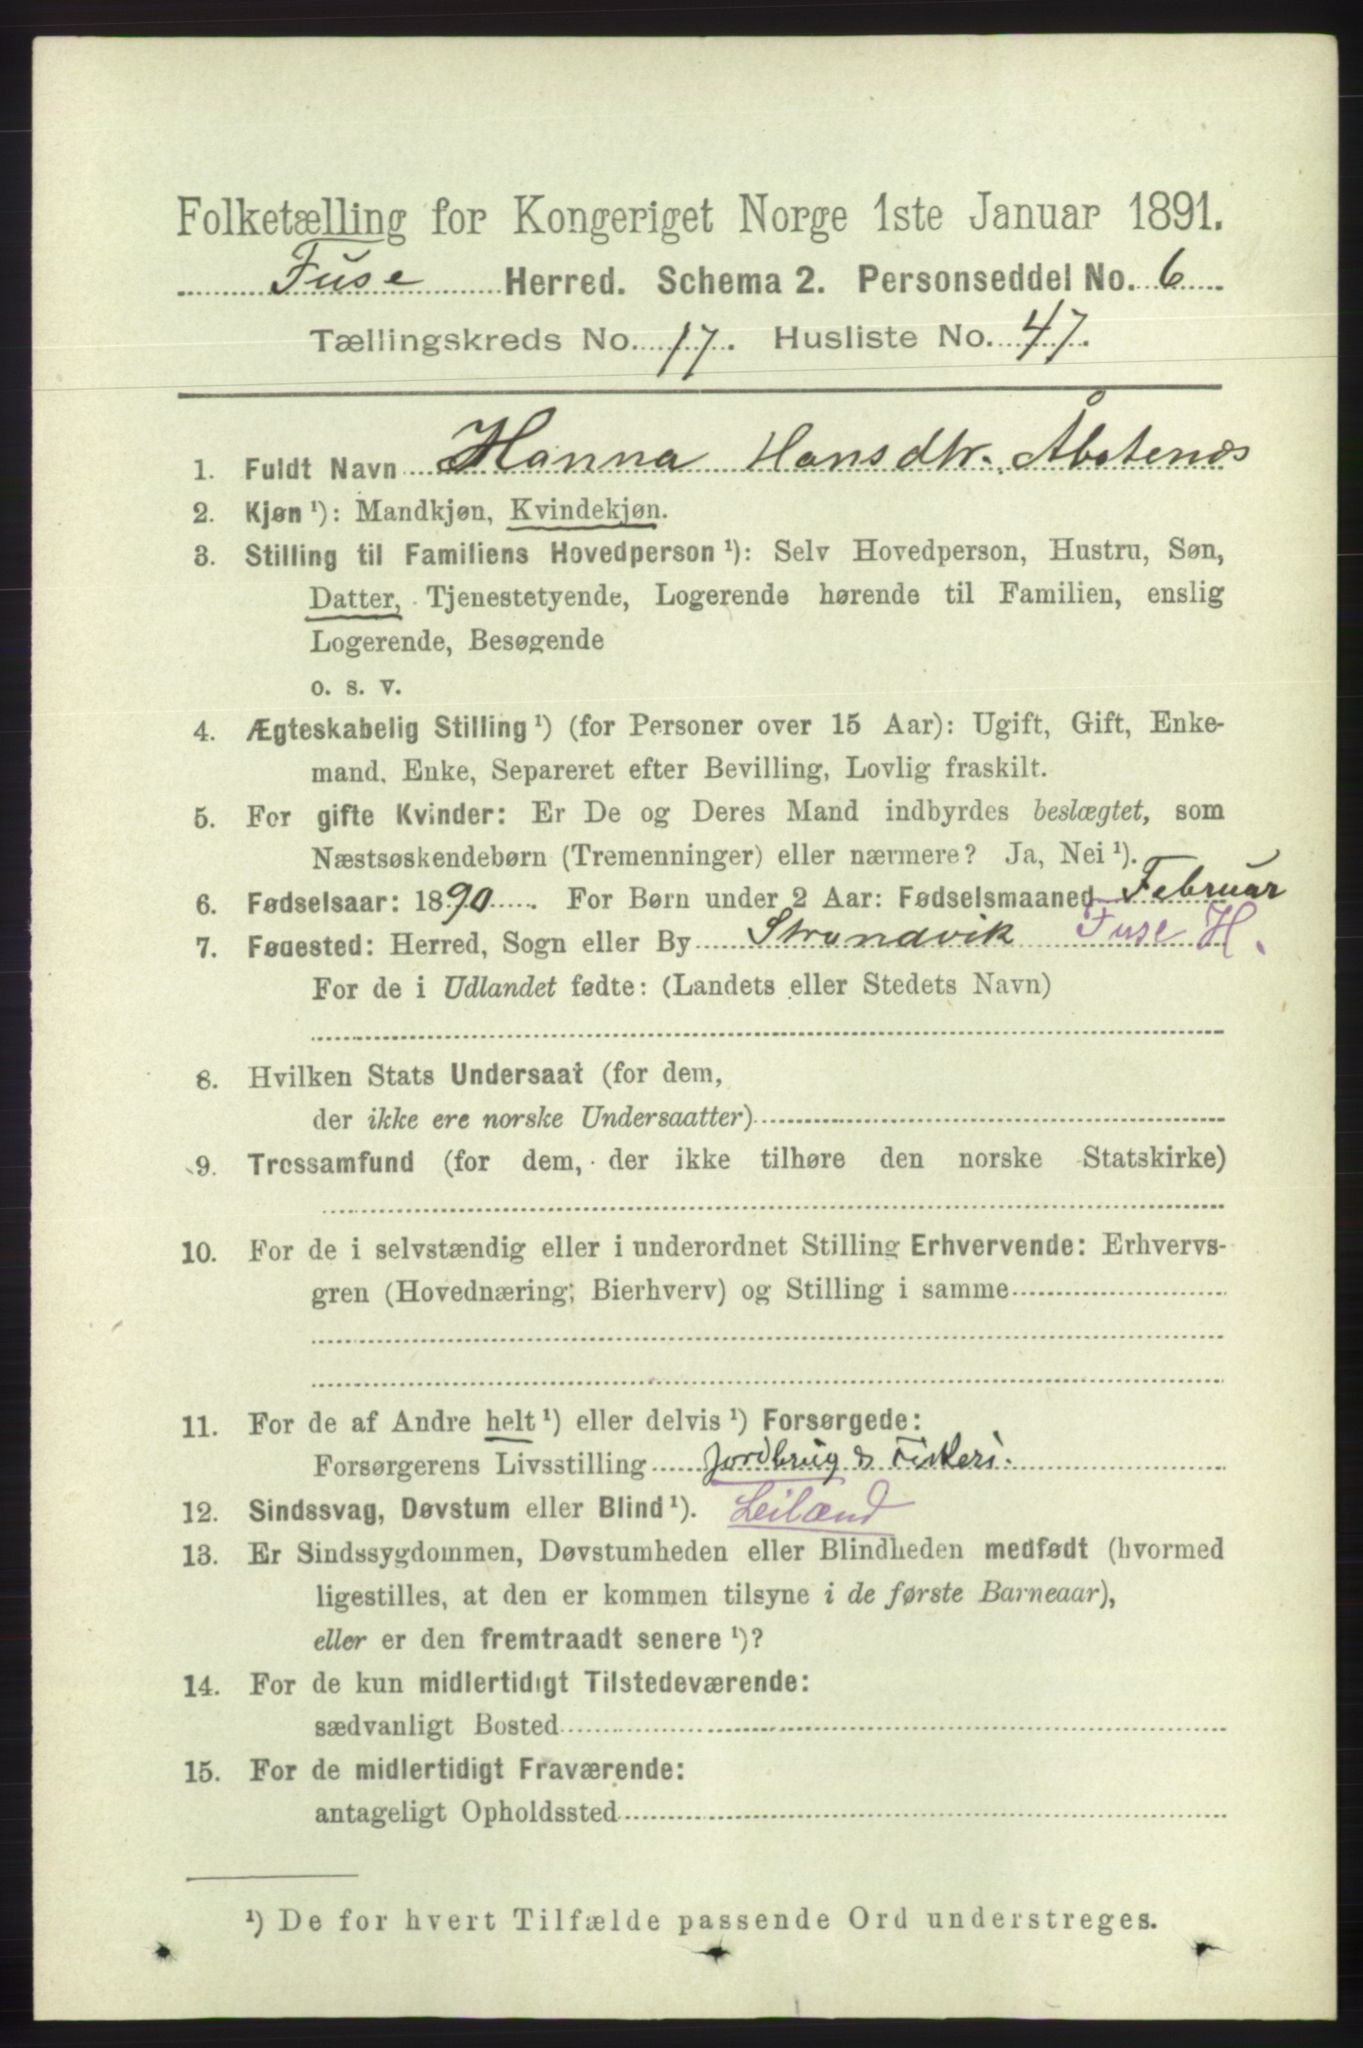 Folketælling for Kongeriget Norge 1ste Januar 1891.
Fuse Herred. Schema 2. Personseddel No. 6
Tællingskreds No. 17. Husliste No. 47.
1. Fuldt Navn Hanna Hansdtr. Åbotenæs
2. Kjøn ¹): Mandkjøn, Kvindekjøn.
3. Stilling til Familiens Hovedperson ¹): Selv Hovedperson, Hustru, Søn,
Datter, Tjenestetyende, Logerende hørende til Familien, enslig
Logerende, Besøgende
o. s. v.
4. Ægteskabelig Stilling ¹) (for Personer over 15 Aar): Ugift, Gift, Enke-
mand, Enke, Separeret efter Bevilling, Lovlig fraskilt.
5. For gifte Kvinder: Er De og Deres Mand indbyrdes beslægtet, som
Næstsøskendebørn (Tremenninger) eller nærmere? Ja, Nei ¹).
6. Fødselsaar: 1890. For Børn under 2 Aar: Fødselsmaaned Februar
7. Fødested: Herred, Sogn eller By Strandvik Fuse H.
For de i Udlandet fødte: (Landets eller Stedets Navn)
8. Hvilken Stats Undersaat (for dem,
der ikke ere norske Undersaatter)
9. Trossamfund (for dem, der ikke tilhøre den norske Statskirke)
10. For de i selvstændig eller i underordnet Stilling Erhvervende: Erhvervs-
gren (Hovednæring; Bierhverv) og Stilling i samme
11. For de af Andre helt ¹) eller delvis ¹) Forsørgede:
Forsørgerens Livsstilling Jordbrug & Fiskeri.
12. Sindssvag, Døvstum eller Blind ¹). Leilænd
13. Er Sindssygdommen, Døvstumheden eller Blindheden medfødt (hvormed
ligestilles, at den er kommen tilsyne i de første Barneaar),
eller er den fremtraadt senere ¹)?
14. For de kun midlertidigt Tilstedeværende:
sædvanligt Bosted
15. For de midlertidigt Fraværende:
antageligt Opholdssted
¹) De for hvert Tilfælde passende Ord understreges.